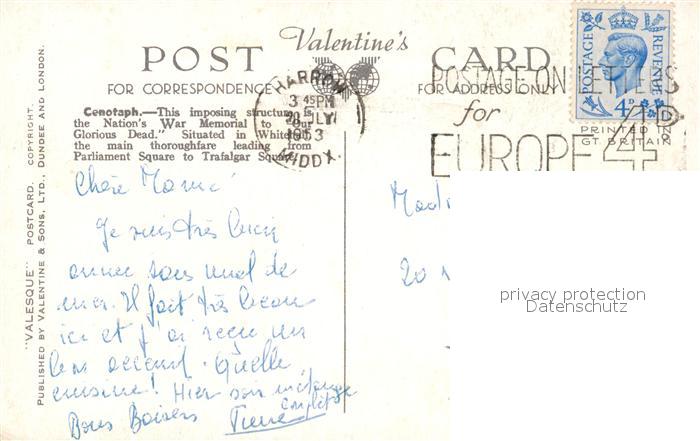 POST Valentine's CARD
FOR CORRESPONDENCE FOR ADDRESS ONLY
Cenotaph.—This imposing structure is
the Nation's War Memorial to "Our
Glorious Dead." Situated in Whitehall
the main thoroughfare leading from
Parliament Square to Trafalgar Square.
HARROW
3 45PM
20 JLY
1953
MIDDX.
POSTAGE ON LETTERS
for
EUROPE 4D
POSTAGE REVENUE
4D
PRINTED IN
GT BRITAIN
"VALESQUE" POSTCARD. COPYRIGHT.
PUBLISHED BY VALENTINE & SONS, LTD., DUNDEE AND LONDON.
Chère Mamie
Je suis très bien
arrivé sans mal de
mer. Il fait très beau
ici et j'ai reçu un
bon accueil. Quelle
cuisine! Hier son mélange
Bons Baisers Pierre
20
privacy protection
Datenschutz